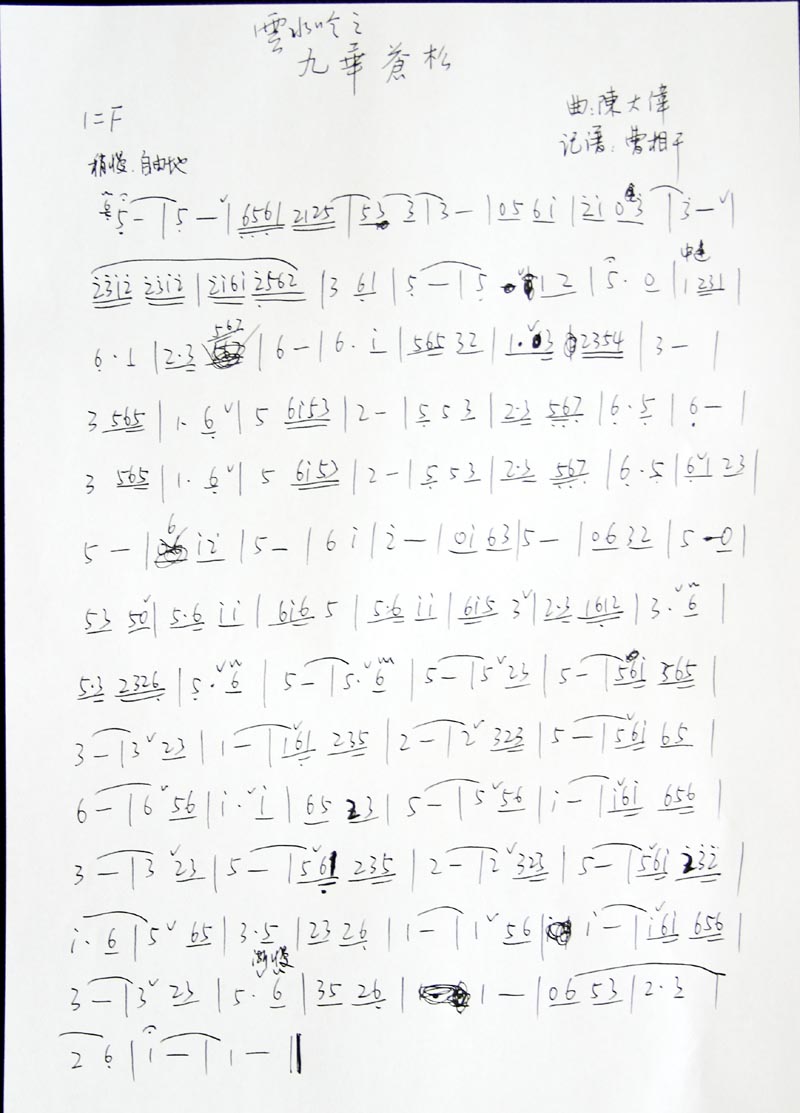 雲水吟之
九華蒼松
1=F
曲:陳大偉
记谱:曹相干
稍慢.自由地
5 — | 5 — | 6561 2125 | 53 3 | 3 — | 0561 | 210 3 | 3 — |
2312 2312 | 2161 2562 | 3 61 | 5 — | 5 12 | 5·0 | 1 231 |
中速
6·1 | 2·3 567 | 6 — | 6·i | 565 32 | 1·3 2354 | 3 — |
3 565 | 1·6 | 5 6i53 | 2 — | 5 53 | 2·3 567 | 6·5 | 6 — |
3 565 | 1·6 | 5 6i53 | 2 — | 5 53 | 2·3 567 | 6·5 | 61 23 |
5 — | 6 i2 | 5 — | 6 i | 2 — | 0i 63 | 5 — | 06 32 | 5 0 |
53 50 | 5·6 ii | 6i6 5 | 5·6 ii | 6i5 3 | 2·3 1612 | 3·6 |
5·3 2326 | 5·6 | 5 — | 5·6 | 5 — | 5 23 | 5 — | 56i 365 |
3 — | 3 23 | 1 — | 161 235 | 2 — | 2 323 | 5 — | 56i 65 |
6 — | 6 56 | i·i | 65 23 | 5 — | 5 56 | i — | i6i 656 |
3 — | 3 23 | 5 — | 561 235 | 2 — | 2 323 | 5 — | 56i 232 |
i·6 | 5 65 | 3·5 | 23 26 | 1 — | 1 56 | i — | i6i 656 |
渐慢
3 — | 3 23 | 5·6 | 35 26 | 1 — | 06 53 | 2·3 |
2 6 | 1 — | 1 — ‖